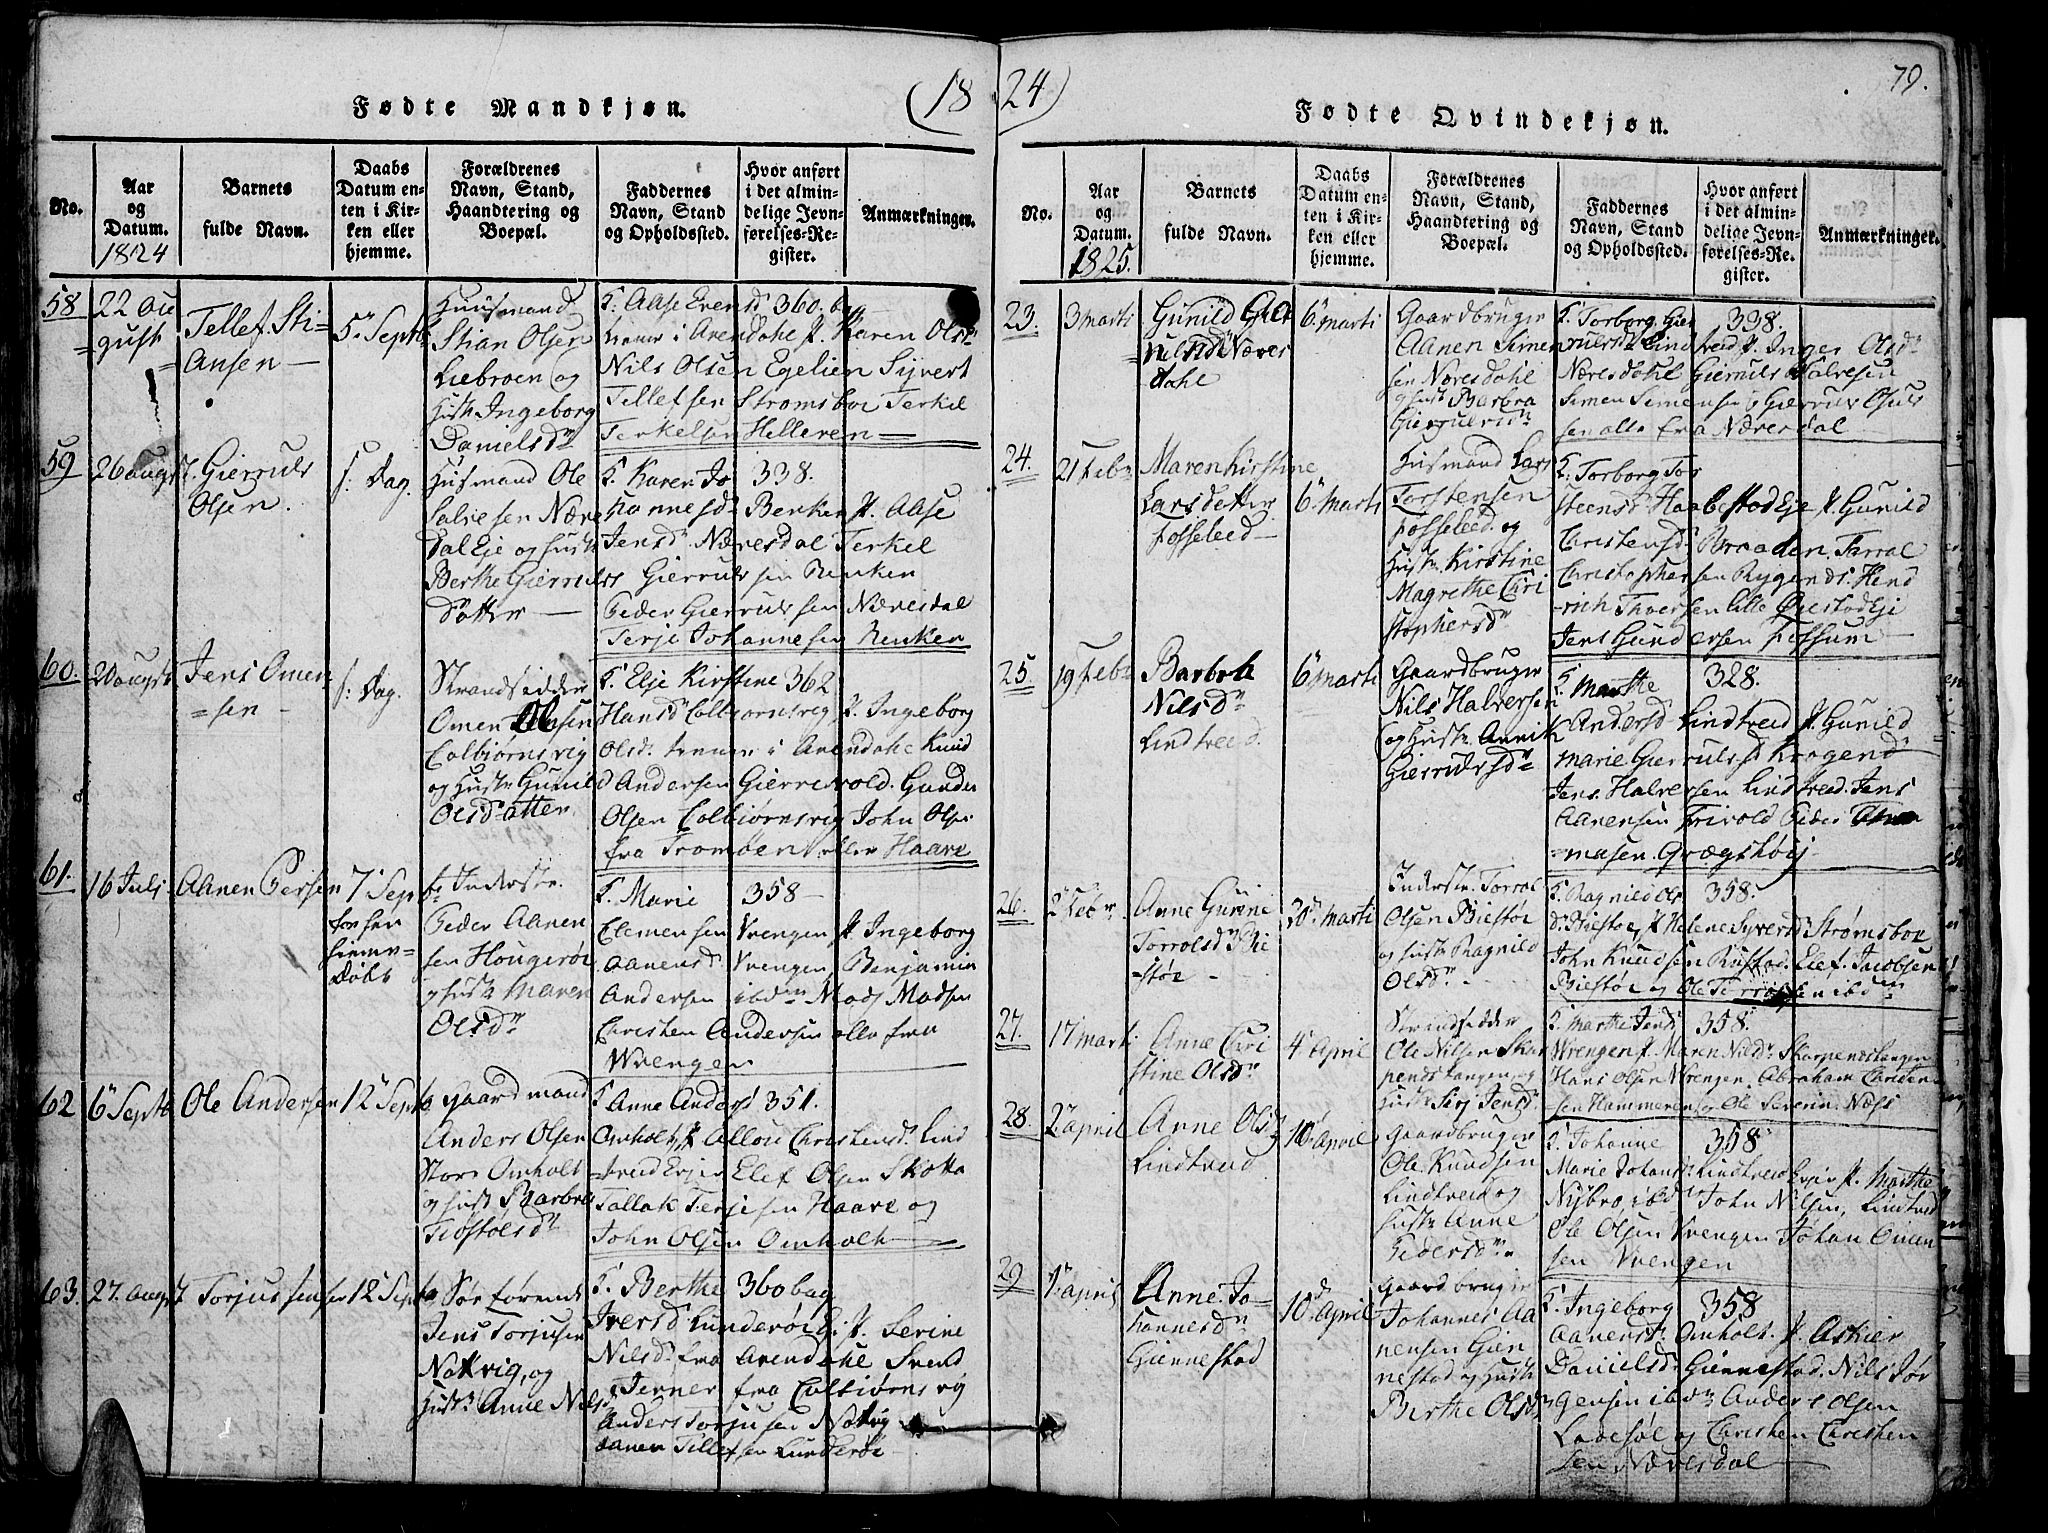 (18
Fødte Mandkjøn.
No.
Aar og Datum. 1824
Barnets fulde Navn.
Daabs Datum enten i Kirken eller hjemme.
Forældrenes Navn, Stand, Haandtering og Boepæl.
Faddernes Navn, Stand og Opholdssted.
Hvor anført i det almindelige Jevnførelses-Register.
Anmærkninger.
58
22 Au
gust
Tellef Sti-
ansen
5te Septb
Huusmand
Stian Olsen
Liebroen og
Hust Ingeborg
Danielsdr
F. Aase Evensd 360. bag
i Arendahl P. Karen Olsd
Nils Olsen Egelien Sijvert
Tellefsen Strømsboe Terkel
Terkelsen Helleren
59
26 augst
Gierruls
Olsen.
s: Dag.
Husmand Ole
Salvesen Næve
dal Eje og Hust
Berthe Gierruls
Datter
F. Karen Jo 338.
hannesd Benken P. Aase
Jensdr Næresdal Terkel
Gierrulsen Renken
Peder Gierrulsen Næresdal
Terje Johannesen Renken
60.
20 augst
Jens Omen
sen
s: Dag.
Strandsidder
Omen Olsen
Colbiørnsvig
og Hustr Gunil
Olsdatter
F. Elje Kirstine 362
Hansdr Colbiornsvig P. Ingeborg
Olsd. tienner i Arendahl Knud
Andersen Gierrevold. Gunder
Olsen Colbiørnsvig John Olsn
fra Tromøen eller Haave
61.
16 Juli
Aanen Persen
7 Sep
forhen
hiemme-
døbt
Inderstr.
Peder Aanen
sen Hougerøe
og hust Maren
Olsdr
F. Marie 358
Clemensen Vrengen P. Ingeborg
Aanensd. Vrengen, Benjamin
Andersen ibdm Mads Madsen
Christen Andersen alle fra
Wrengen
62
6 Septb
Ole Andersen
12 Septb
Gaardmand
Anders Olsen
Store Omholt
og hust Barbra
Tiostolsdr
F. Anne Andersd 351.
Omholt, P. Allou Christensd. Lind
treid Ejer Elef Olsen Skotta
Tallak Terjesen Haave og
John Olsen Omholt
63.
27. august
Torjus Jensen
12 Septb
Søe førende
Jens Torjusen
Natvig, og
Hustr Anne Nilsd
F. Berthe 360 bag
Iversd Lunderøe P. Serine
Nilsd. fra Arendahl Svend
Tenner fra Colbiørnsvig
Anders Torjusen Natvig
Aanen Tellefsen Lunderøe
24)
79.
Fødte Qvindekjøn.
No.
Aar og Datum. 1825.
Barnets fulde Navn.
Daabs Datum enten i Kirken eller hjemme.
Forældrenes Navn, Stand, Haandtering og Boepæl.
Faddernes Navn, Stand og Opholdssted.
Hvor anført i det almindelige Jevnførelses-Register.
Anmærkninger.
23.
3 marti
Gunild
Næres
dahl
6. marti
Gaardbruger
Aanen Simen
sen Næresdahl
og hust Barbra
Gierrulsdr
F. Torborg Gier 338.
rulsd Lindtreid P. Inger Olsdr
Næresdahl Gierruls Salvesen
Simen Simensen og Gierruls Osuls
sen alle fra Næresdal
24.
21 Febr
Maren Kirstine
Larsdatter
Fosseleed
6. marti
Husmand Lars
Torstensen
Fosseleed og
Hustr Kirstine
Magrethe Chri
stophersdr
F. Torborg Tor
steensd. Haabestad Eje P. Gunild
Christensd. Braaden. Tarral
Christophersen Rygends. Hend
rich Thorsen lille Øiestad Eje
Jens Gundersen Fossum
25
19 Febr
Barbrla
Nilsdr
Lindtreed.
6 marti
Gaardbruger
Nils Halversen
og Hustr Annik
Gierrulsdr
F. Marthe 328.
Andersd Lindtreid P. Gunild
Marie Gierrulsd Krogend
Jens Halversen Lindtreid. Jens
Aanensen Trivold Peder Tho
masen Grægshøij
26.
2 Febr.
Anne Gurine
Torrolsdr Bie
støe
20 marti
Inderstr. Torral
Olsen Biestøe
og hustr Ragnild
Olsdr
F. Ragnild Ols 358.
dr Biestøe, P. Helene Syversd Strømsboe
John Knudsen Rustad. Elef Jacobsen
Biestøe og Ole Torrolsen ibdm
27.
17 marti
Anne Chri
stine Olsdr
4 April
Strandsidder
Ole Nilsen Skar
pendstangen, og
Hust Siri Jensd.
F. Marthe Jensd 358.
Wrengen P. Maren Nilsdr Skarpenestangen
Hans Olsen Wrengen. Abraham Christen
sen Hammeren og Ole Severin Næss
28.
2. april
Anne Olsd
Lindtreid
10. April
Gaardbruger
Ole Knudsen
Lindtreid og
hustr Anne
Pedersdr
F. Johanne 358.
Marie Johans. Lindtreid Ejer P. Marthe
Nybro, ibdm John Nilsen, Lindtred
Ole Olsen Vrengen Johan Omen
sen Vrengen
29
1 april
Anne. Jo-
hannesdr
Giennestad
10. April
Gaardbruger
Johannes Aa
nensen Gien
nestad og Hust
Berthe Olsd
F. Ingeborg 358
Aanensd. Omholt. P. Askier
Danielsd. Giennestad. Nils Jør
gensen ibdm Anders Olsen
Ladesøl og Christen Christen
sen Næresdal